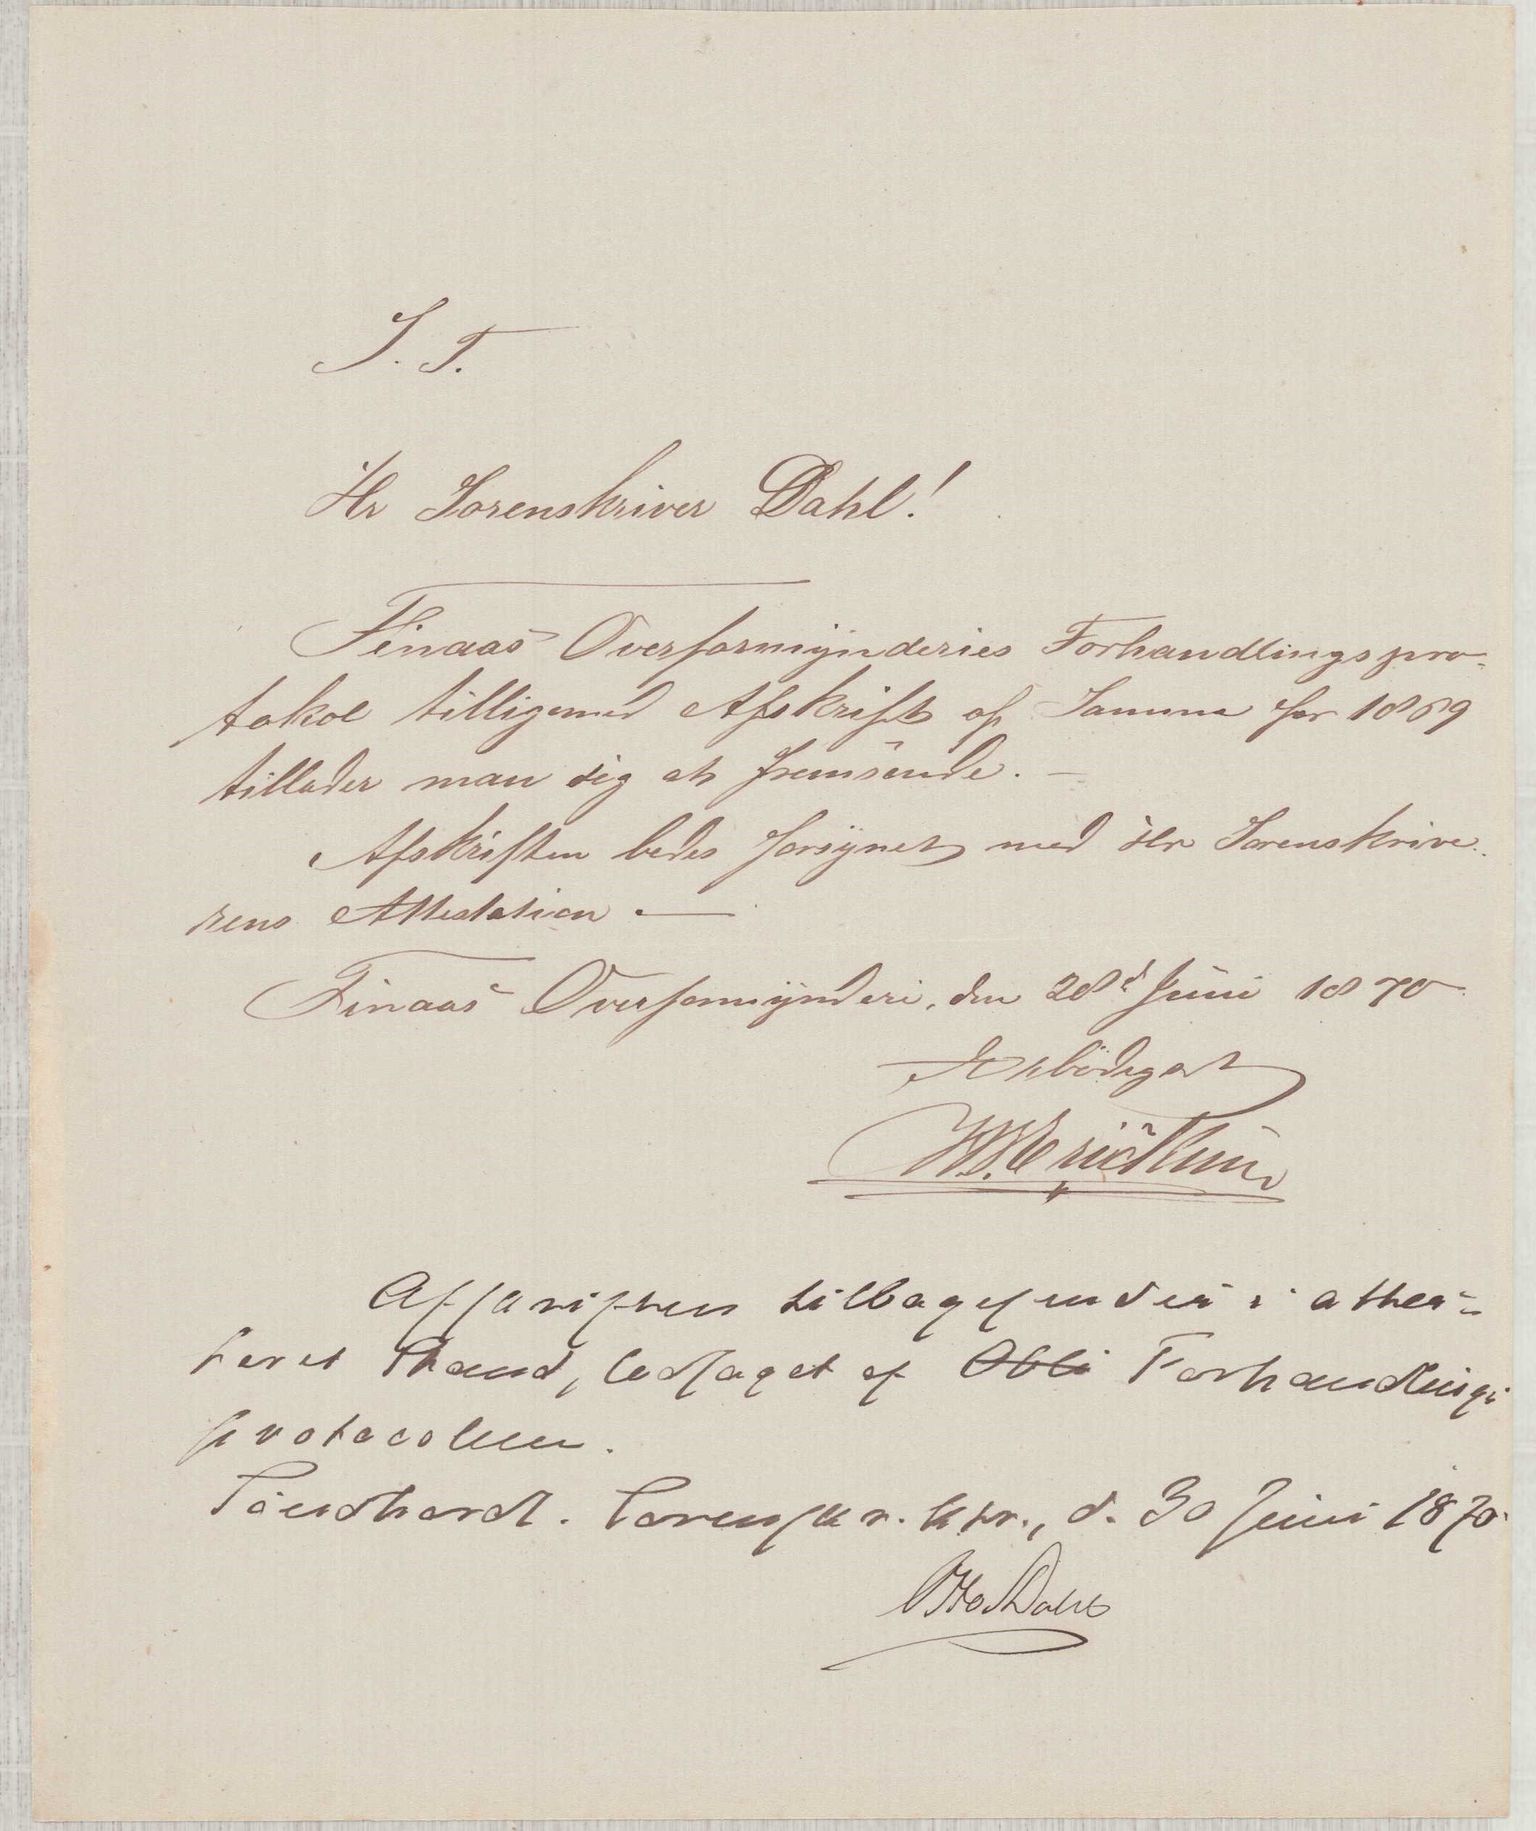 S. T.
Hr Sorenskriver Dahl!
Finaas Overformynderies Forhandlingspro-
tokol tilligemed Afskrift af Samme for 1869
tillader man sig at fremsende. —
Afskriften bedes forsynet med Hr Sorenskrive-
rens Attestation. —
Finaas Overformynderi, den 28d Juni 1870
Ærbödigst
Afskriften tilbagesendes i attes-
teret Stand, ledsaget af Obli Forhandlings
protocollen.
Söndhordl. Sorenskr. ktr., d. 30 Juni 1870
Otto Dahl